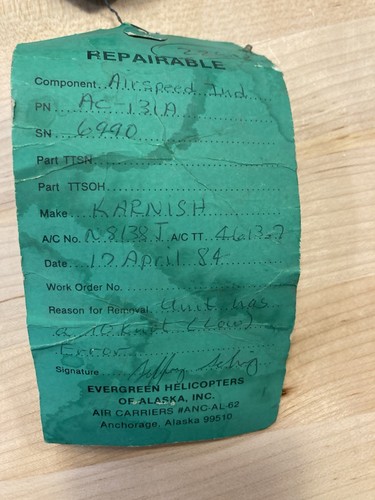 REPAIRABLE
Component Airspeed Ind
PN AC-131A
SN 6990
Part TTSN
Part TTSOH
Make KARNISH
A/C No. N8138J A/C TT 4613.7
Date 17 April 84
Work Order No.
Reason for Removal Unit has
a 10 Knot (Low)
Error
Signature Jeffrey
EVERGREEN HELICOPTERS
OF ALASKA, INC.
AIR CARRIERS #ANC-AL-62
Anchorage, Alaska 99510